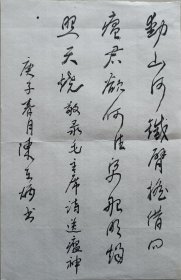 动山河铁臂摇借问
瘟君欲何往纸船明烛
照天烧敬录毛主席诗送瘟神
庚子春月陈立炳书